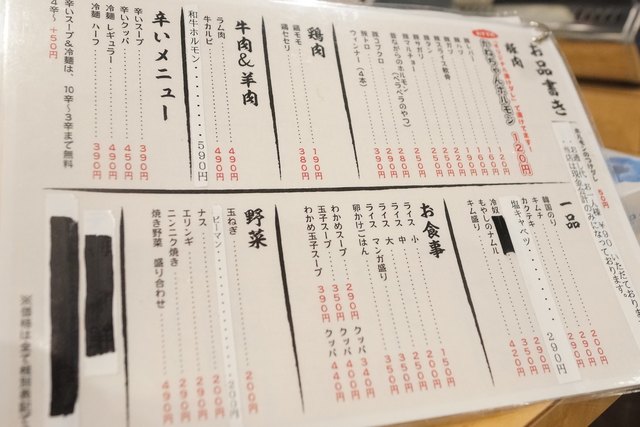 お品書き
豚肉
かねちゃんホルモン 120円
豚ガツ 160円
豚レバー 190円
豚スライス軟骨 220円
豚タン 250円
豚サガリ 250円
豚マルチョー 280円
昔ながらのホルモン(ペラペラのやつ) 290円
豚コブクロ 290円
豚トロ 390円
ウインナー(4本)
鶏肉
鶏モモ 190円
鶏セセリ 380円
牛肉&羊肉
ラム肉 490円
牛カルビ 490円
和牛ホルモン 590円
辛いメニュー
辛いスープ 390円
辛いクッパ 450円
冷麺 レギュラー 490円
冷麺 ハーフ 390円
辛いスープ&冷麺は、10辛～3辛まで無料
4辛～+50円
50円
一品
韓国のり 200円
キムチ 290円
カクテキ 290円
塩キャベツ 290円
冷奴
もやしのナムル 350円
キムチ盛り 420円
お食事
ライス 小 150円
ライス 中 200円
ライス 大 250円
ライス マンガ盛り 350円
卵かけごはん 350円
わかめスープ 290円 クッパ 340円
玉子スープ 350円 クッパ 400円
わかめ玉子スープ 390円 クッパ 440円
野菜
玉ねぎ 200円
ピーマン 200円
ナス 200円
エリンギ 290円
ニンニク焼き 290円
焼き野菜 盛り合わせ 490円
※価格は全て税別表記で